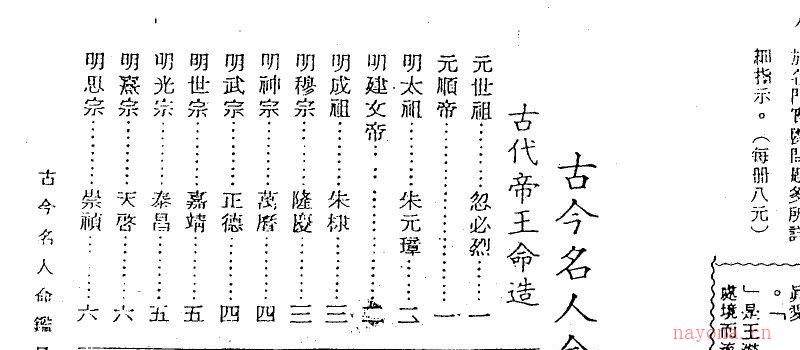 細指示。（每册八元）
古今名人命
古代帝王命造
元世祖………忽必烈………一
元順帝………………………一
明太祖………朱元璋………二
明建文帝……………………二
明成祖………朱棣…………三
明穆宗………隆慶…………三
明神宗………萬曆…………四
明武宗………正德…………四
明世宗………嘉靖…………五
明光宗………泰昌…………五
明熹宗………天啓…………六
明思宗………崇禎…………六
古今名人命鑑
nayona.cn